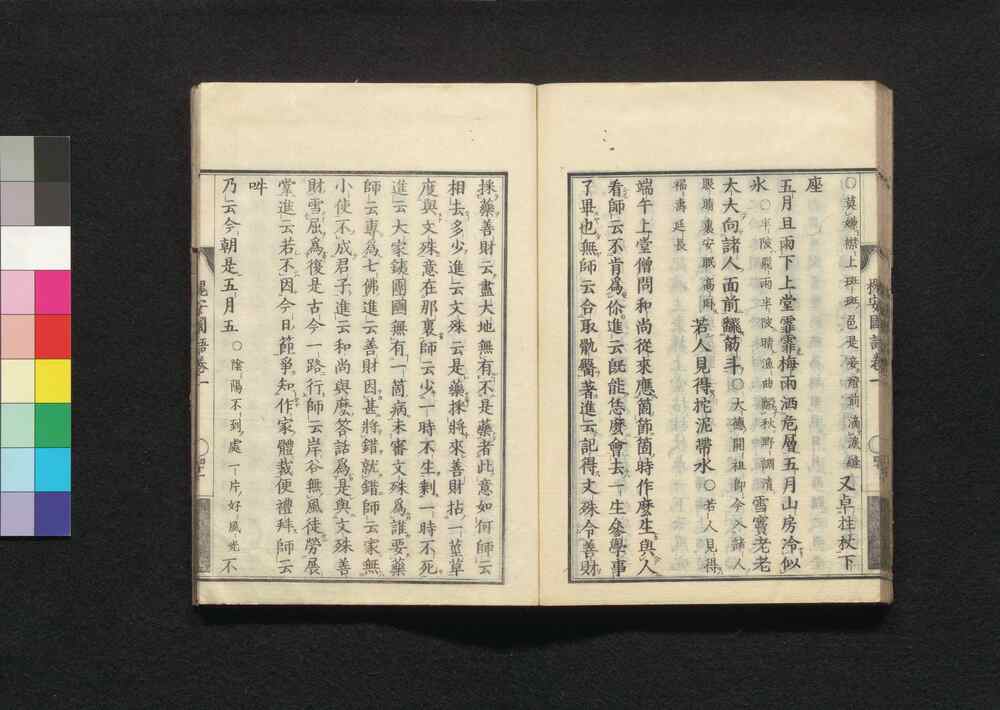 槐安國語卷一
○莫嫌襟上斑斑色是妾燈前滴淚縫又卓拄杖下
座
五月旦雨下上堂霏霏梅雨洒危層五月山房冷似
氷○半陂飛雨半陂晴漁曲飄秋野調清雪竇老老
大大向諸人面前飜筋斗○大德開祖師令入諸人
眼睛裏安眠高臥若人見得拕泥帶水○若人見得
福壽延長
端午上堂僧問和尚從來應箇節箇時作麼生與人
看師云不肯爲你進云既能恁麼會去一生參學事
了畢也無師云合取骩臀著進云記得文殊令善財
採藥善財云盡大地無有不是藥者此意如何師云
相去多少進云文殊云是藥採將來善財拈一莖草
度與文殊意在那裏師云少一時不生剩一時不死
進云大家銕團圞無有一箇病未審文殊爲誰要藥
師云專爲七佛進云善財因甚將錯就錯師云家無
小使不成君子進云和尚與麼答話爲是與文殊善
財雪屈爲後是古今一路行師云岸谷無風徒勞展
掌進云若不因今日節爭知作家體裁便禮拜師云
吽
乃云今朝是五月五○陰陽不到處一片好風光不
槐安國語卷一